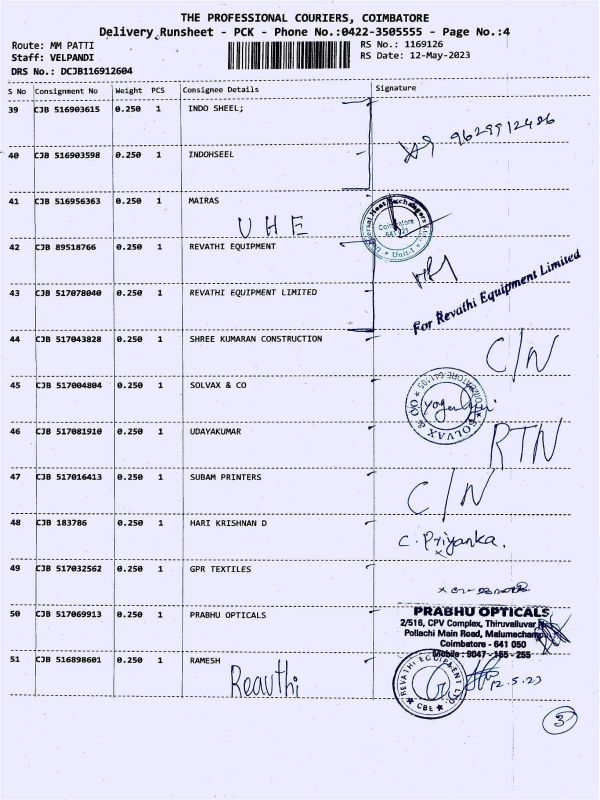 THE PROFESSIONAL COURIERS, COIMBATORE
Delivery Runsheet - PCK - Phone No.:0422-3505555 - Page No.:4
Route: MM PATTI RS No.: 1169126
Staff: VELPANDI RS Date: 12-May-2023
DRS No.: DCJB116912604
S No Consignment No Weight PCS Consignee Details Signature
39 CJB 516903615 0.250 1 INDO SHEEL;
9629912486
40 CJB 516903598 0.250 1 INDOHSEEL
41 CJB 516956363 0.250 1 MAIRAS
UHE
Heat Exchangers
Coimbatore
Unit-I
42 CJB 89518766 0.250 1 REVATHI EQUIPMENT
43 CJB 517078040 0.250 1 REVATHI EQUIPMENT LIMITED
For Revathi Equipment Limited
44 CJB 517043828 0.250 1 SHREE KUMARAN CONSTRUCTION
C/N
45 CJB 517004804 0.250 1 SOLVAX & CO
SOLVAX & CO COIMBATORE 641105
46 CJB 517081910 0.250 1 UDAYAKUMAR
RTN
47 CJB 517016413 0.250 1 SUBAM PRINTERS
C/N
48 CJB 183786 0.250 1 HARI KRISHNAN D
C. Priyanka.
49 CJB 517032562 0.250 1 GPR TEXTILES
50 CJB 517069913 0.250 1 PRABHU OPTICALS
PRABHU OPTICALS
2/516, CPV Complex, Thiruvalluvar
Pollachi Main Road, Malumachampa
Coimbatore - 641 050
Mobile : 9047 - 155 - 255
51 CJB 516898601 0.250 1 RAMESH
Reauthi
REVATHI EQUIPMENT LTD. CBE
12.5.23
3